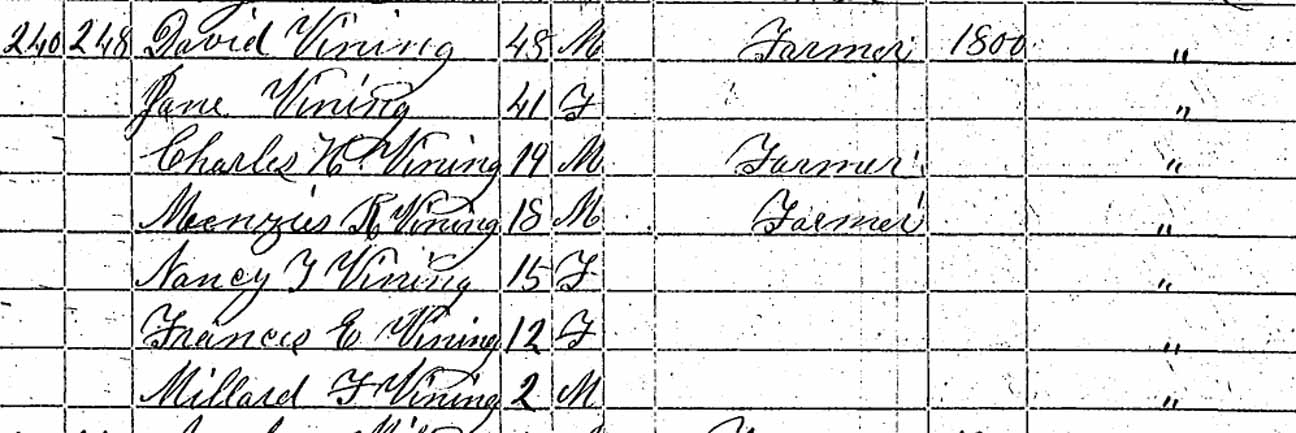 240 248 David Vining 48 M Farmer 1800 "
Jane Vining 41 F "
Charles H. Vining 19 M Farmer "
Menzies R Vining 18 M Farmer "
Nancy J Vining 15 F "
Frances E Vining 12 F "
Millard F Vining 2 M "